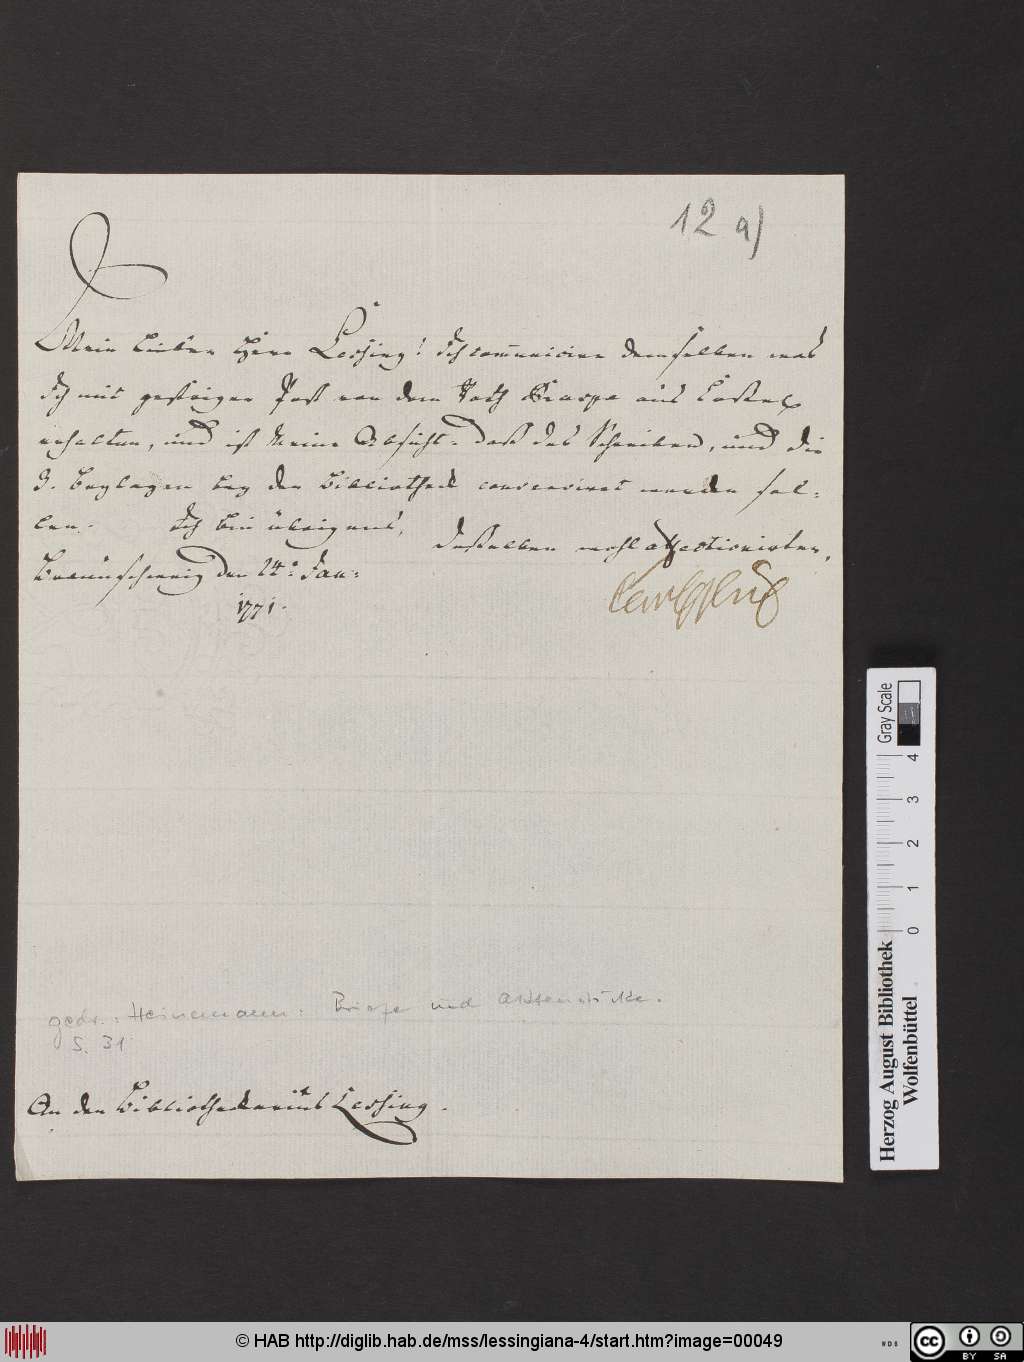 12 a)
Mein lieber Herr Lessing! Ich communicire demselben was
Ich mit gestriger Post von dem Rath Raspe aus Cassel
erhalten, und ist Meine Absicht, daß das Schreiben, und die
3. Beylagen bey der Bibliotheck conserviret werden sol-
len. Ich bin übrigens,
Deßelben wohl affectionirter,
Braunschweig den 24.n Jan:
1771.
Carl HzBuL
gedr.: Heinemann: Briefe und Aktenstücke.
S. 31
An den Bibliothecarius Lessing.
Herzog August Bibliothek
Wolfenbüttel
0 1 2 3 4
Gray Scale
© HAB http://diglib.hab.de/mss/lessingiana-4/start.htm?image=00049
WDB
cc
BY SA